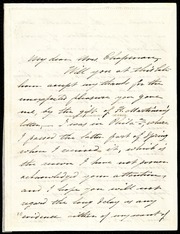 My dear Mrs Chapman,
Will you at this late
hour accept my thanks for the
unexpected pleasure you gave
me, by the gift of H. Martineau's
letter,— I was in Phila. where
I passed the latter part of Spring
when I received it, which is
the reason I have not sooner
acknowledged your attention,
and I hope you will not
regard the long delay as any
evidence either of my want of